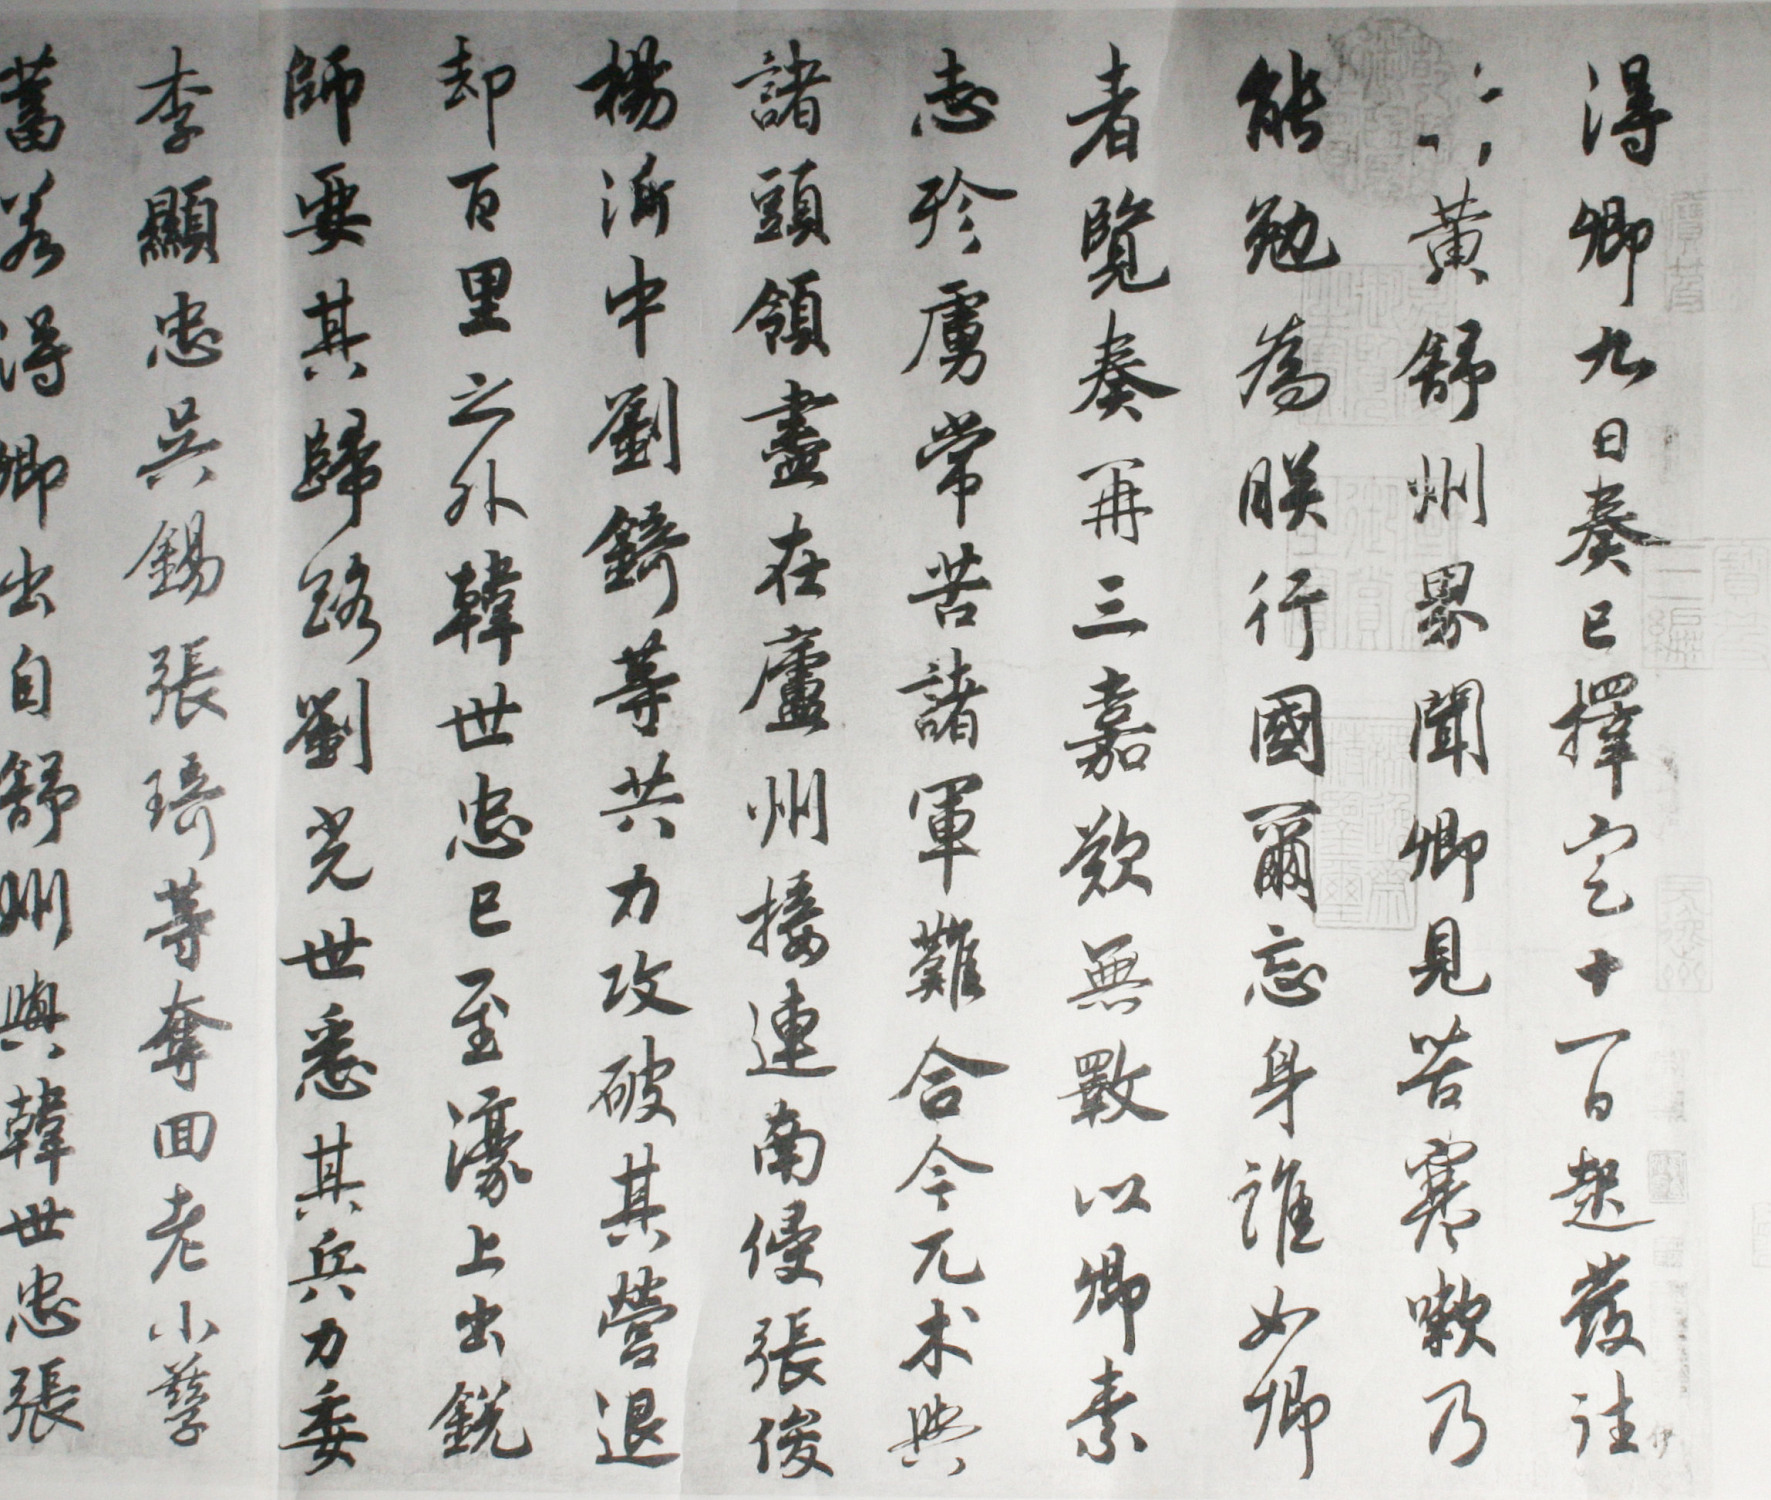 得卿九日奏已擇定十一日起發往
蘄黃舒州界聞卿見苦寒嗽乃
能勉為朕行國爾忘身誰如卿
者覽奏再三嘉歎無斁以卿素
志殄虜常苦諸軍難合今兀术與
諸頭領盡在廬州接連南侵張俊
楊沂中劉錡等共力攻破其營退
却百里之外韓世忠已至濠上出銳
師要其歸路劉光世悉其兵力委
李顯忠吳錫張琦等奪回老小孳
畜若得卿出自舒州與韓世忠張